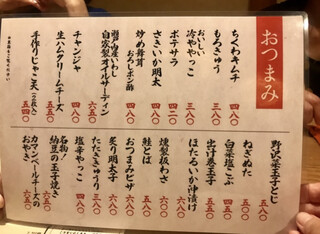 おつまみ
ちくわキムチ 四八〇
もろきゅう 三八〇
おいしい冷ややっこ 四八〇
ポテサラ 四二〇
さきいか明太 四八〇
炒め舞茸おろしポン酢 五八〇
瀬戸内産いわし自家製オイルサーディン 六五〇
チャンジャ 四五〇
生ハムクリームチーズ 五八〇
手作りじゃこ天(2枚入) 五四〇
野沢菜玉子とじ 五八〇
ねぎぬた 五〇〇
白菜塩こぶ 四五〇
出汁巻玉子 五五〇
ほたるいか沖漬け 五〇〇
燻製板わさ 六〇〇
鮭とば 五八〇
おつまみピザ 六八〇
炙り明太子 六八〇
たたききゅうり 三八〇
塩辛やっこ 五八〇
名物!納豆の玉子焼き 六八〇
カマンベールチーズのおやき